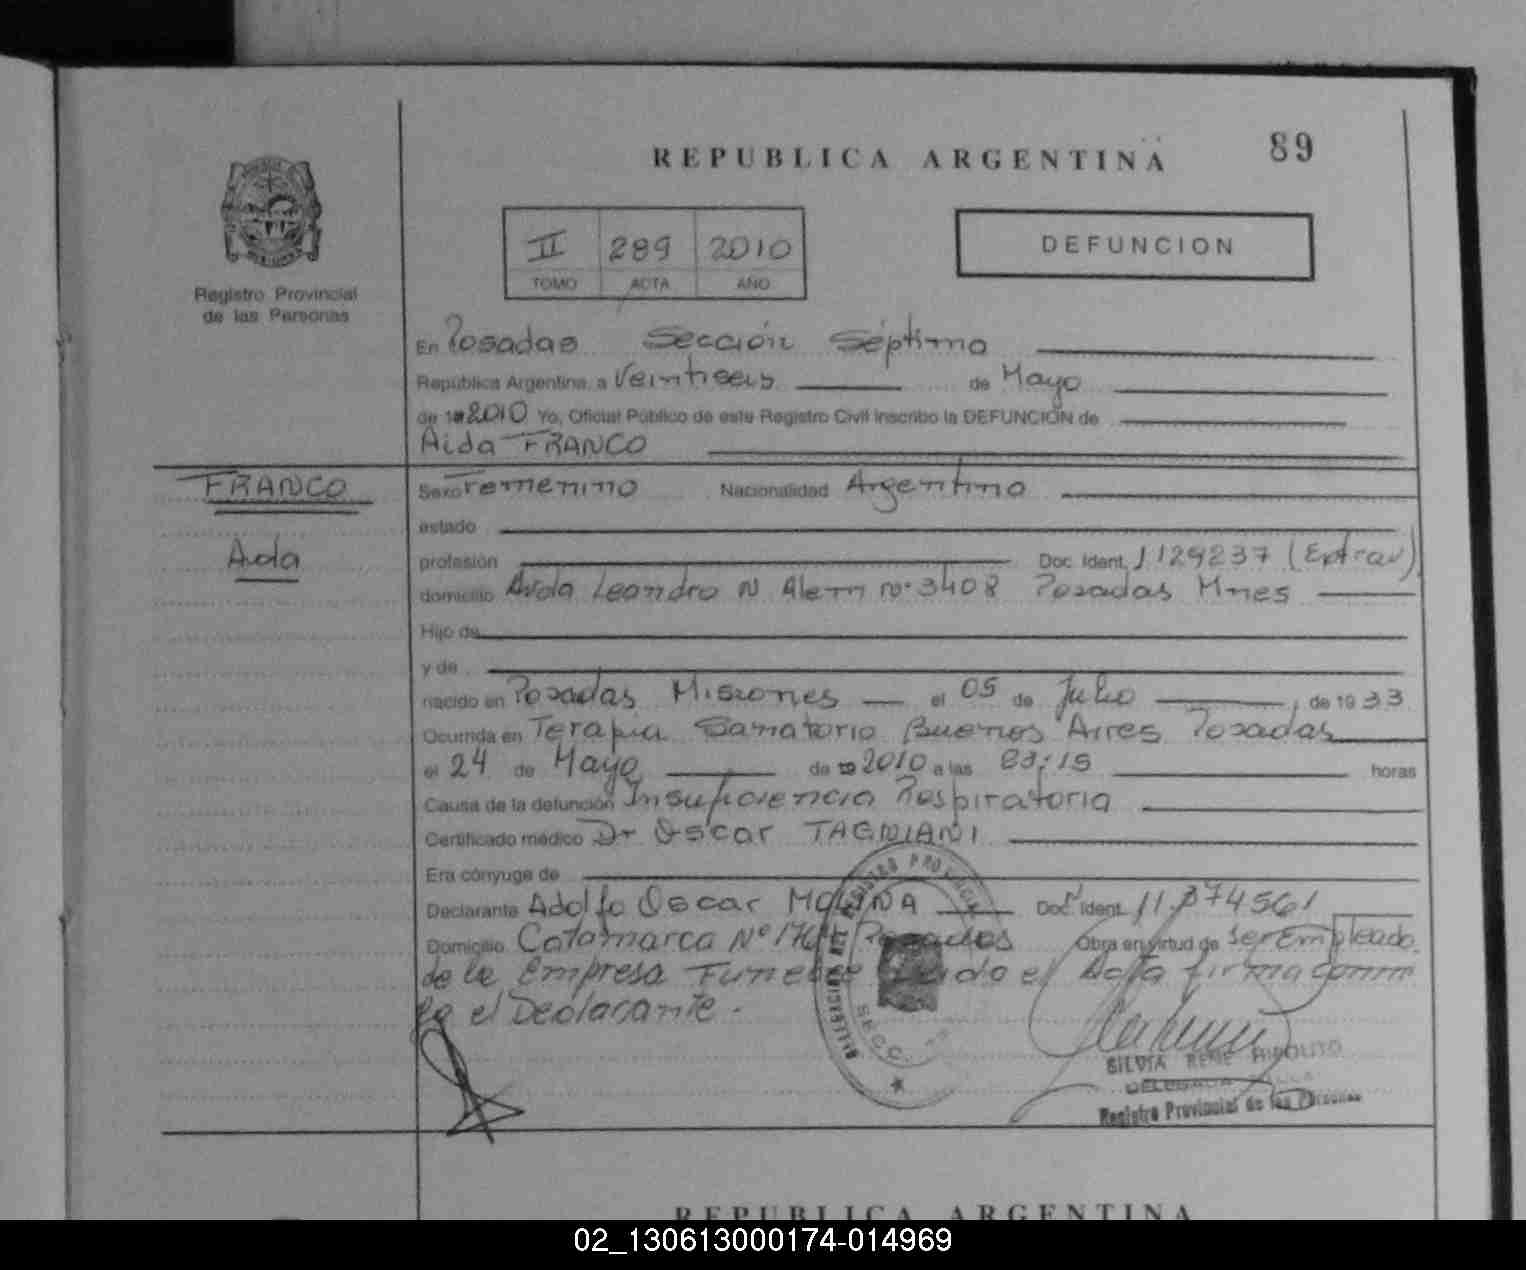 REPUBLICA ARGENTINA
89
Registro Provincial
de las Personas
II 289 2010
TOMO ACTA AÑO
DEFUNCION
En Posadas Sección Séptima
República Argentina, a Veintiseis de Mayo
de 2010 Yo, Oficial Público de este Registro Civil inscribo la DEFUNCIÓN de
Aida FRANCO
FRANCO
Aida
Sexo Femenino Nacionalidad Argentina
estado
profesión Doc. Ident. 1129237 (Extrav)
domicilio Avda Leandro N Alem nº 3408 Posadas Mnes
Hijo de
y de
nacido en Posadas Misiones el 05 de Julio de 1933
Ocurrida en Terapia Sanatorio Buenos Aires Posadas
el 24 de Mayo de 2010 a las 23:15 horas
Causa de la defunción Insuficiencia Respiratoria
Certificado médico Dr Oscar TAGNIANI
Era cónyuge de
Declarante Adolfo Oscar MOLINA Doc. Ident. 11.374561
Domicilio Catamarca Nº Posadas Obra en virtud de ser Empleado
de la Empresa Funebre Leido el Acta firma conmi
go el Declarante.-
SECC.
SILVIA RENE HIPOLITO
DELEGADA
Registro Provincial de las Personas
REPUBLICA ARGENTINA
02_130613000174-014969